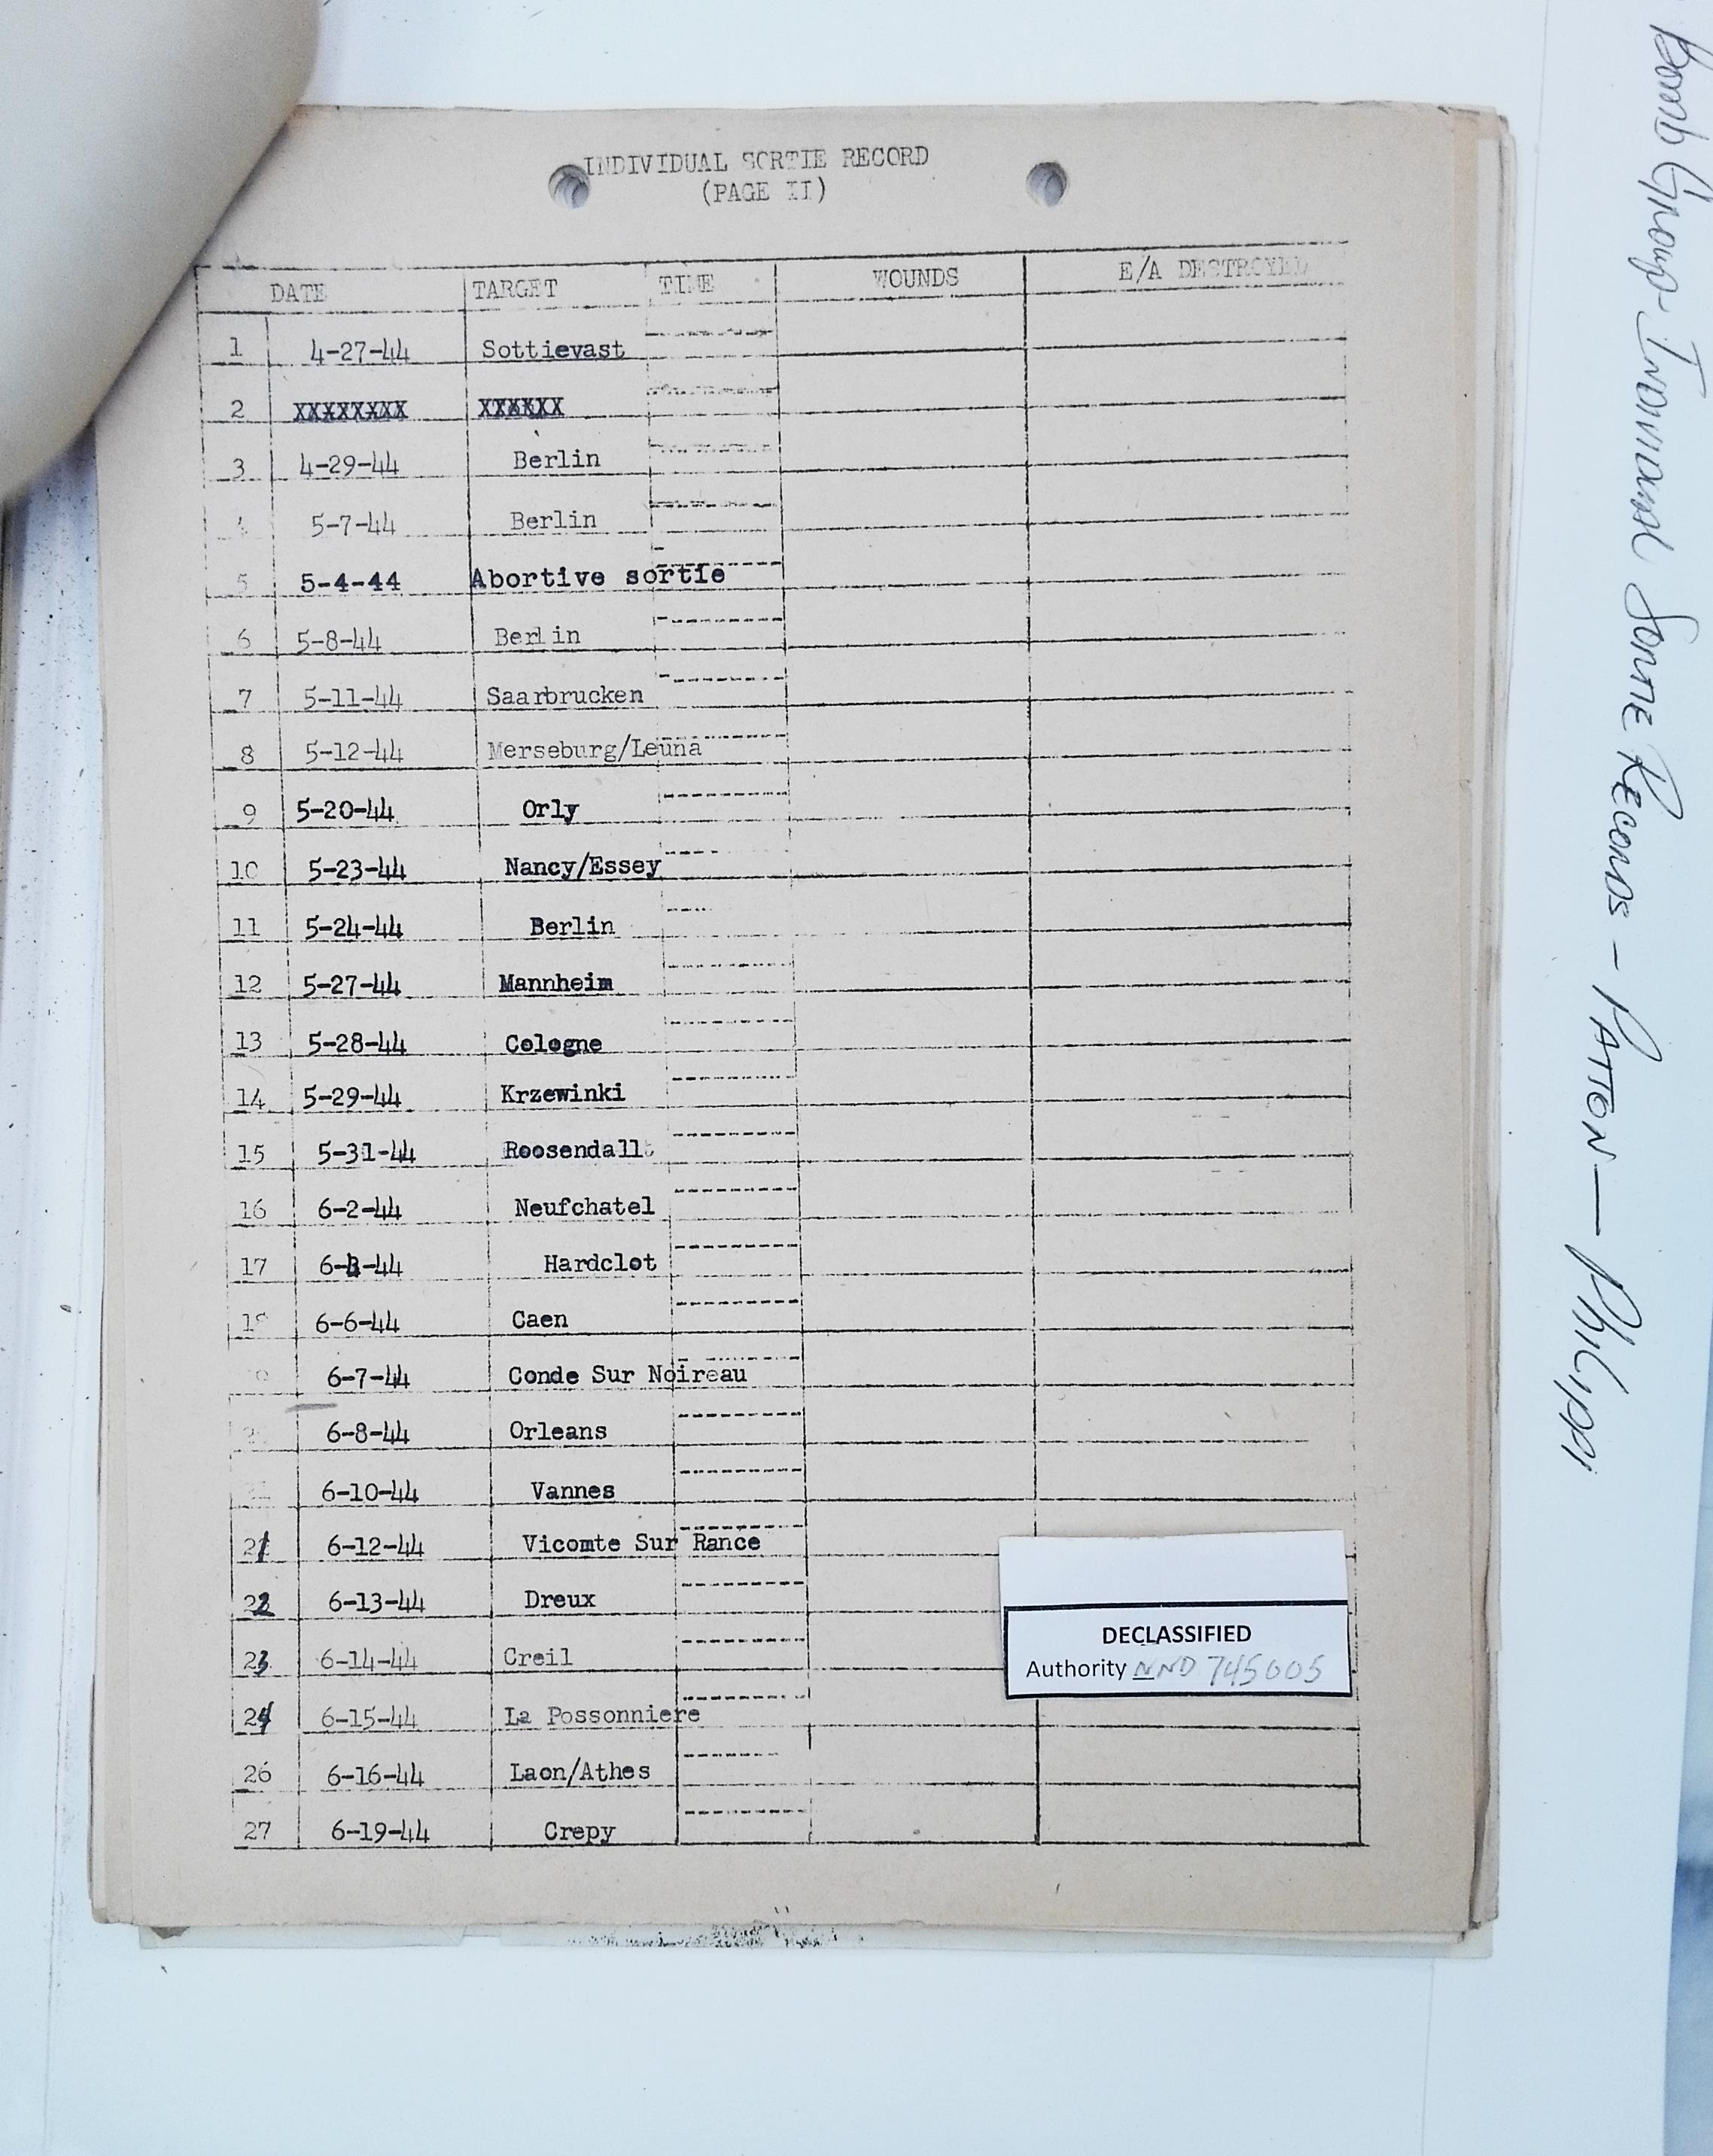 INDIVIDUAL SORTIE RECORD
(PAGE II)
DATE TARGET TIME WOUNDS E/A DESTROYED
1 4-27-44 Sottievast
2 XXXXXXXX XXXXXX
3 4-29-44 Berlin
4 5-7-44 Berlin
5 5-4-44 Abortive sortie
6 5-8-44 Berlin
7 5-11-44 Saarbrucken
8 5-12-44 Merseburg/Leuna
9 5-20-44 Orly
10 5-23-44 Nancy/Essey
11 5-24-44 Berlin
12 5-27-44 Mannheim
13 5-28-44 Cologne
14 5-29-44 Krzewinki
15 5-31-44 Roosendall
16 6-2-44 Neufchatel
17 6- -44 Hardclot
18 6-6-44 Caen
19 6-7-44 Conde Sur Noireau
6-8-44 Orleans
6-10-44 Vannes
21 6-12-44 Vicomte Sur Rance
22 6-13-44 Dreux
23 6-14-44 Creil
24 6-15-44 La Possonniere
26 6-16-44 Laon/Athes
27 6-19-44 Crepy
DECLASSIFIED
Authority NND 745005
Bomb Group - Individual Sortie Records - Patton — Philippi